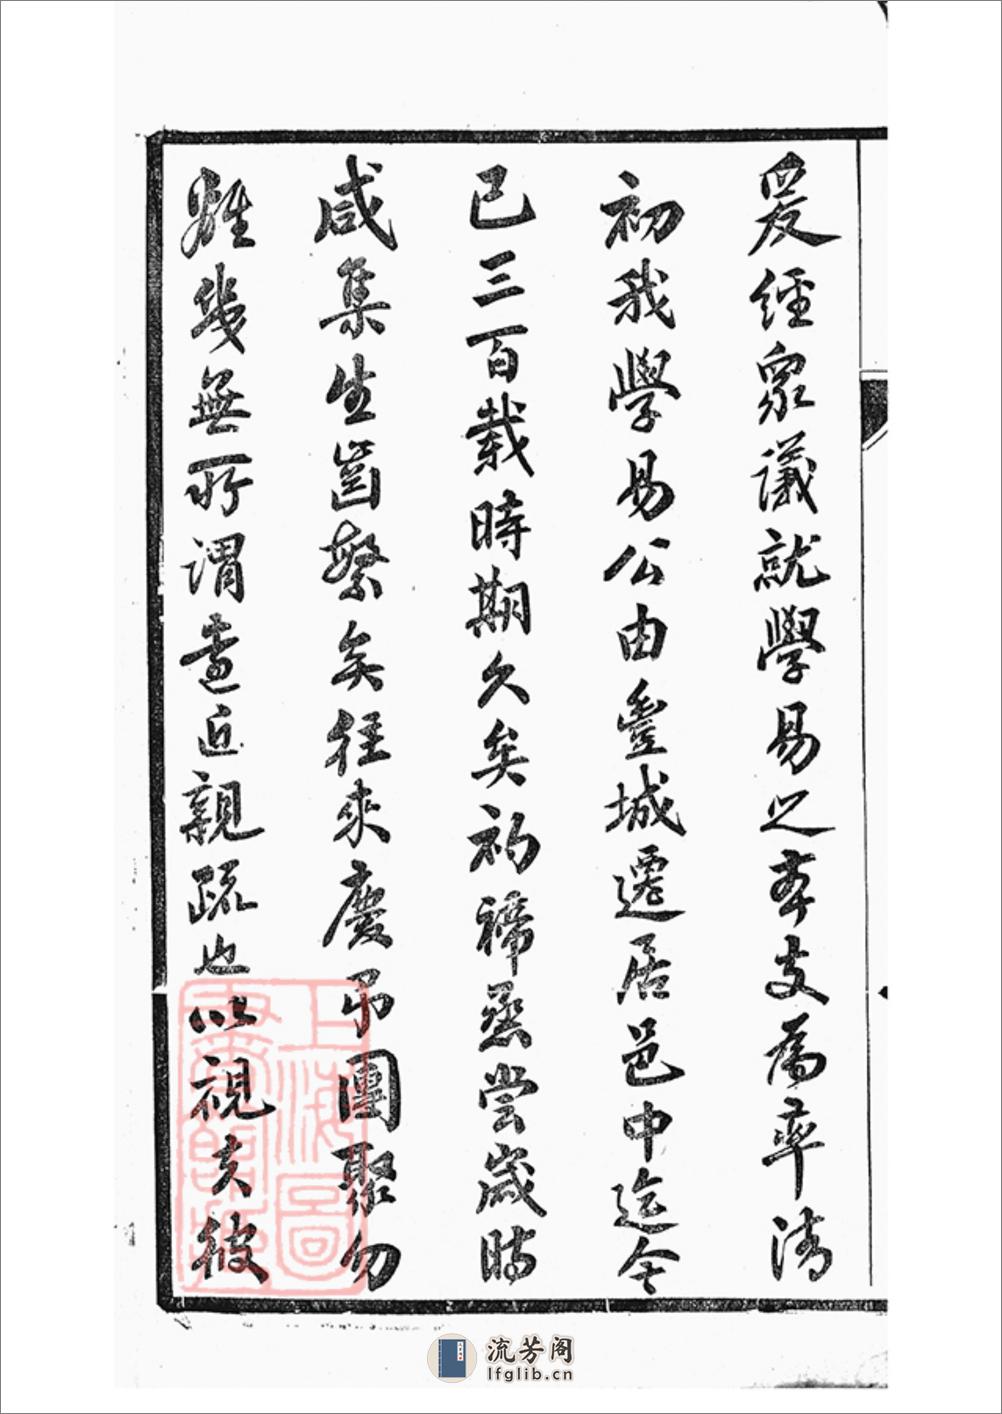 爰經衆議就學易之本支為率清
初我學易公由豐城遷居邑中迄今
已三百載時期久矣礿禘烝嘗歲時
咸集生齒繁矣往來慶吊團聚勿
雖幾無所謂遠近親疏也以視夫彼
上海圖
流芳阁
lfglib.cn